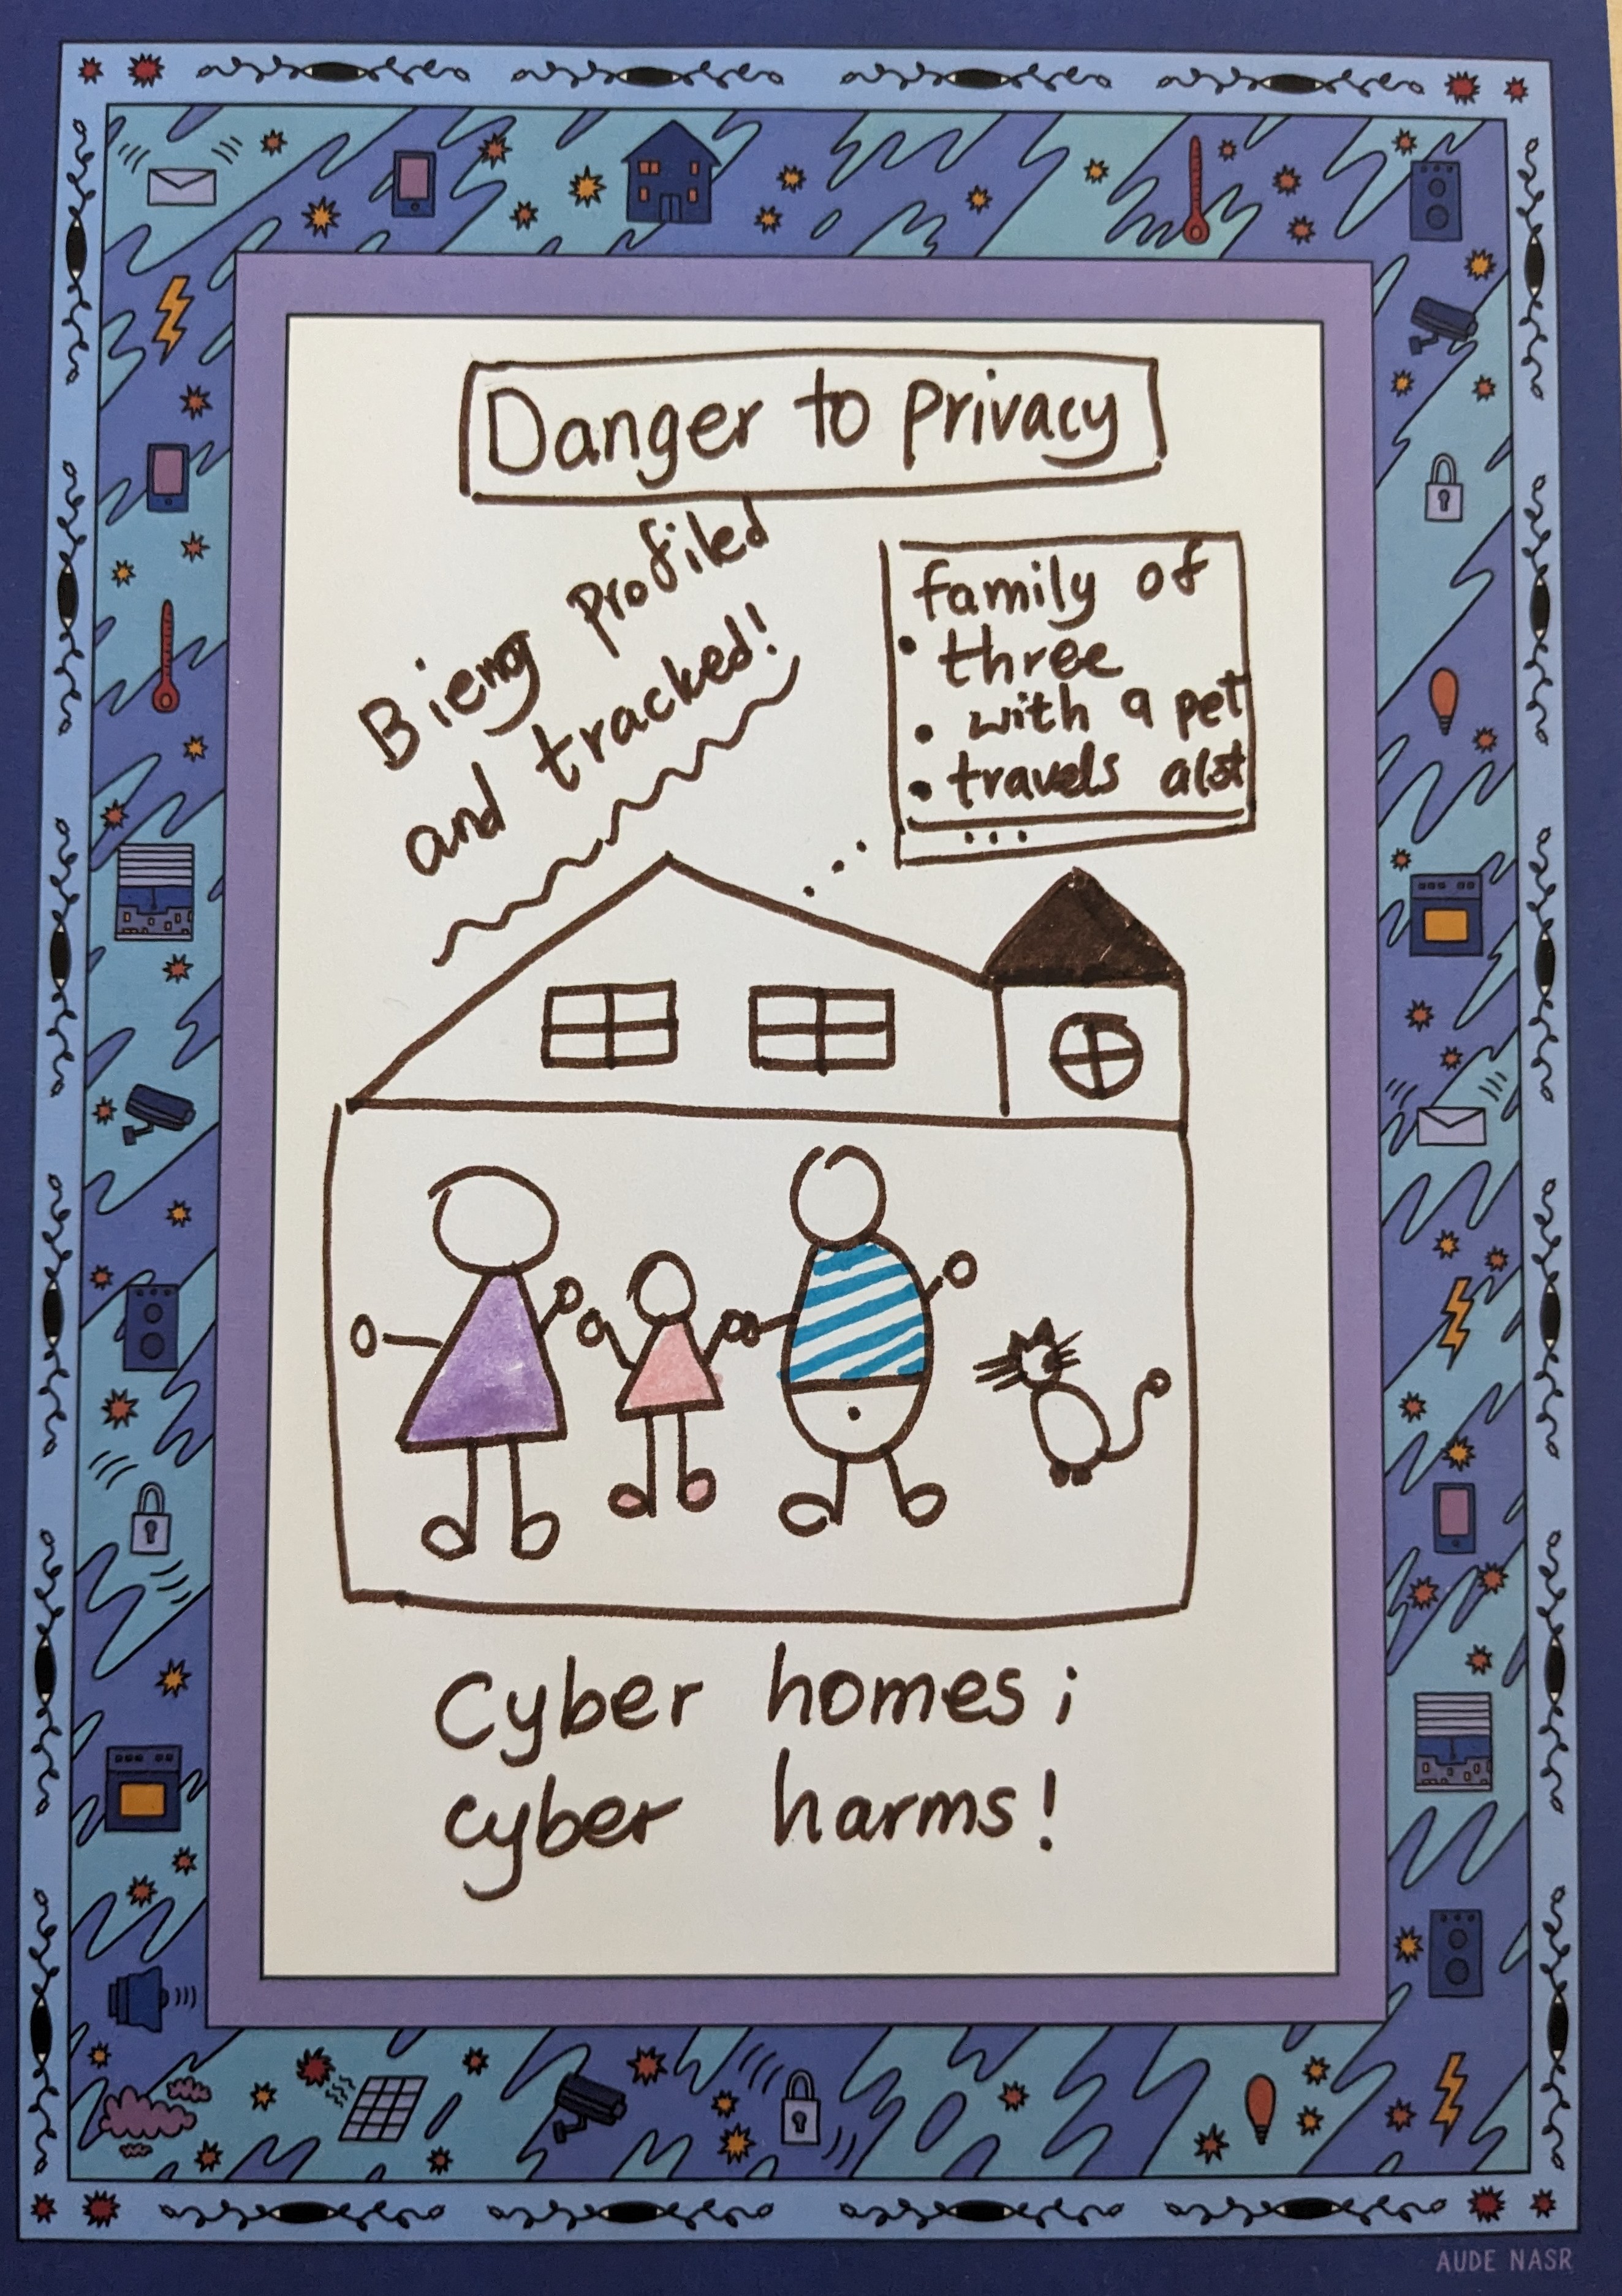 Danger to privacy
Bieng profiled
and tracked!
family of
• three
• with a pet
• travels alot
...
Cyber homes;
cyber harms!
AUDE NASR